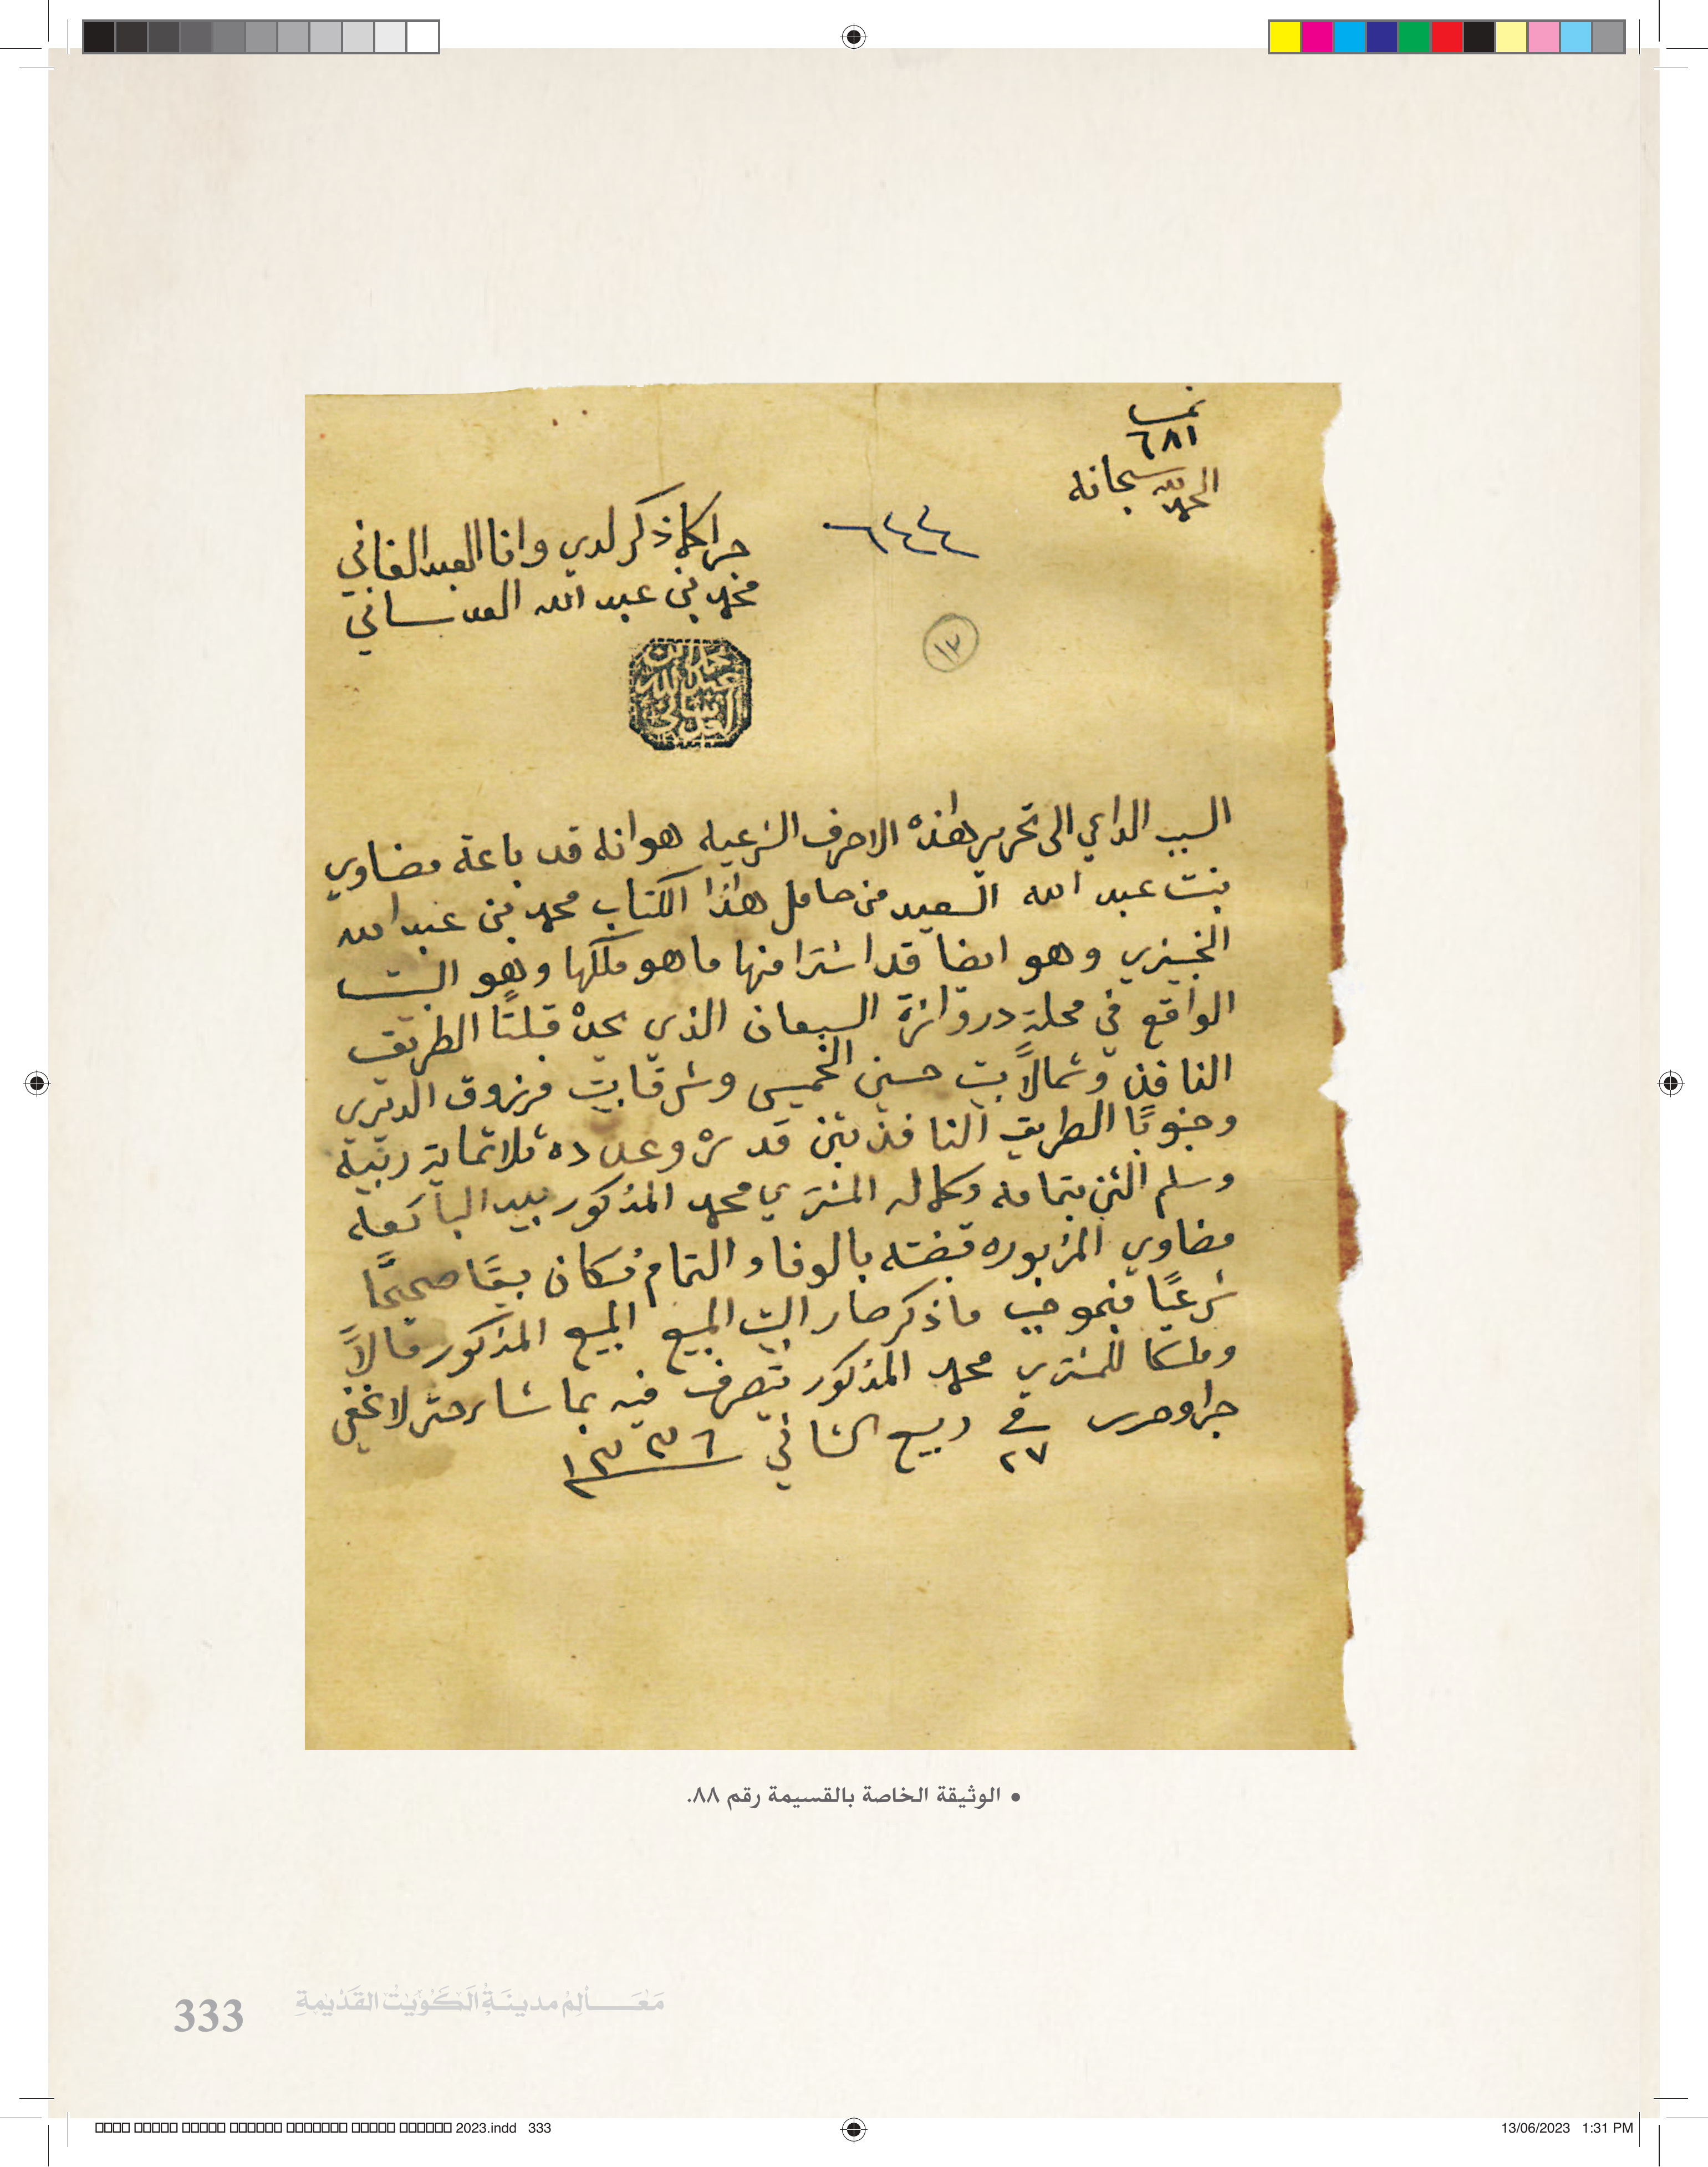 نمب
٦٨١
الحمد لله سبحانه
٦٤٤
جرا كما ذكر لدي وانا العبد الفاني
محمد بن عبد الله العدساني
١٣
محمد بن
عبد الله
العدساني
السبب الداعي الى تحرير هذه الاحرف الشرعيه هو انه قد باعة مضاوي
بنت عبد الله السعيد من حامل هذا الكتاب محمد بن عبد الله
الخبيزي وهو ايضا قد اشترا منها ما هو ملكها وهو البيت
الواقع في محلة دروازة السبعان الذي يحده قبلتًا الطريق
النافذ وشمالاً بيت حسين الخميس وشرقا بيت مرزوق الديري
وجنوبًا الطريق النافذ بثمن قدره وعدده ثلاثماية ربية
وسلم الثمن بتمامه وكماله المشتري محمد المذكور بيد البائعه
مضاوي المزبوره قبضته بالوفا والتمام فكان بيعًا صحيحًا
شرعيًا فبموجب ما ذكر صار البيت المبيع المبيع المذكور مالاً
وملكا للمشتري محمد المذكور يتصرف فيه بما شاء حتى لا يخفى
جرا وحرر في ٢٧ ربيع الثاني ١٣٣٦
• الوثيقة الخاصة بالقسيمة رقم ٨٨.
333 مَعَالِمُ مدينَةِ الكُوَيْتِ القَدِيمَةِ
2023.indd 333 13/06/2023 1:31 PM